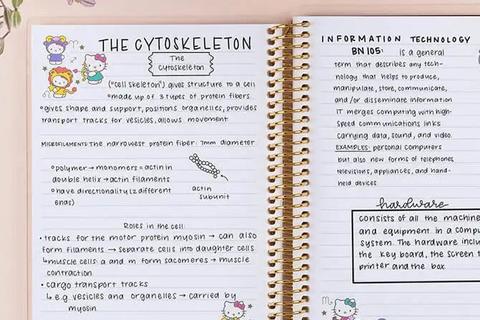 THE CYTOSKELETON
The
Cytoskeleton
("cell skeleton") gives structure to a cell
made up of 3 types of protein fibers
gives shape and support, positions organelles, provides
transport tracks for vesicles, allows movement
MICROFILAMENTS: the narrowest protein fiber: 7mm diameter
polymer → monomers = actin in
double helix → actin filaments
have directionality (2 different
ends)
actin
subunit
Roles in the cell:
• tracks for the motor protein myosin → can also
form filaments → separate cells into daughter cells
↳ muscle cells: a and m form sacomeres → muscle
contraction
• cargo transport tracks
↳ e.g. vesicles and organelles → carried by
myosin
INFORMATION TECHNOLOGY
BN105: is a general
term that describes any tech-
nology that helps to produce,
manipulate, store, communicate,
and /or disseminate information
IT merges computing with high-
speed communications links
carrying data, sound, and video.
EXAMPLES: personal computers
but also new forms of telephones,
televisions, appliances, and hand-
held devices
hardware
consists of all the machine
and equipment in a compu
system. The hardware inclu
the key board, the screen t
printer and the box